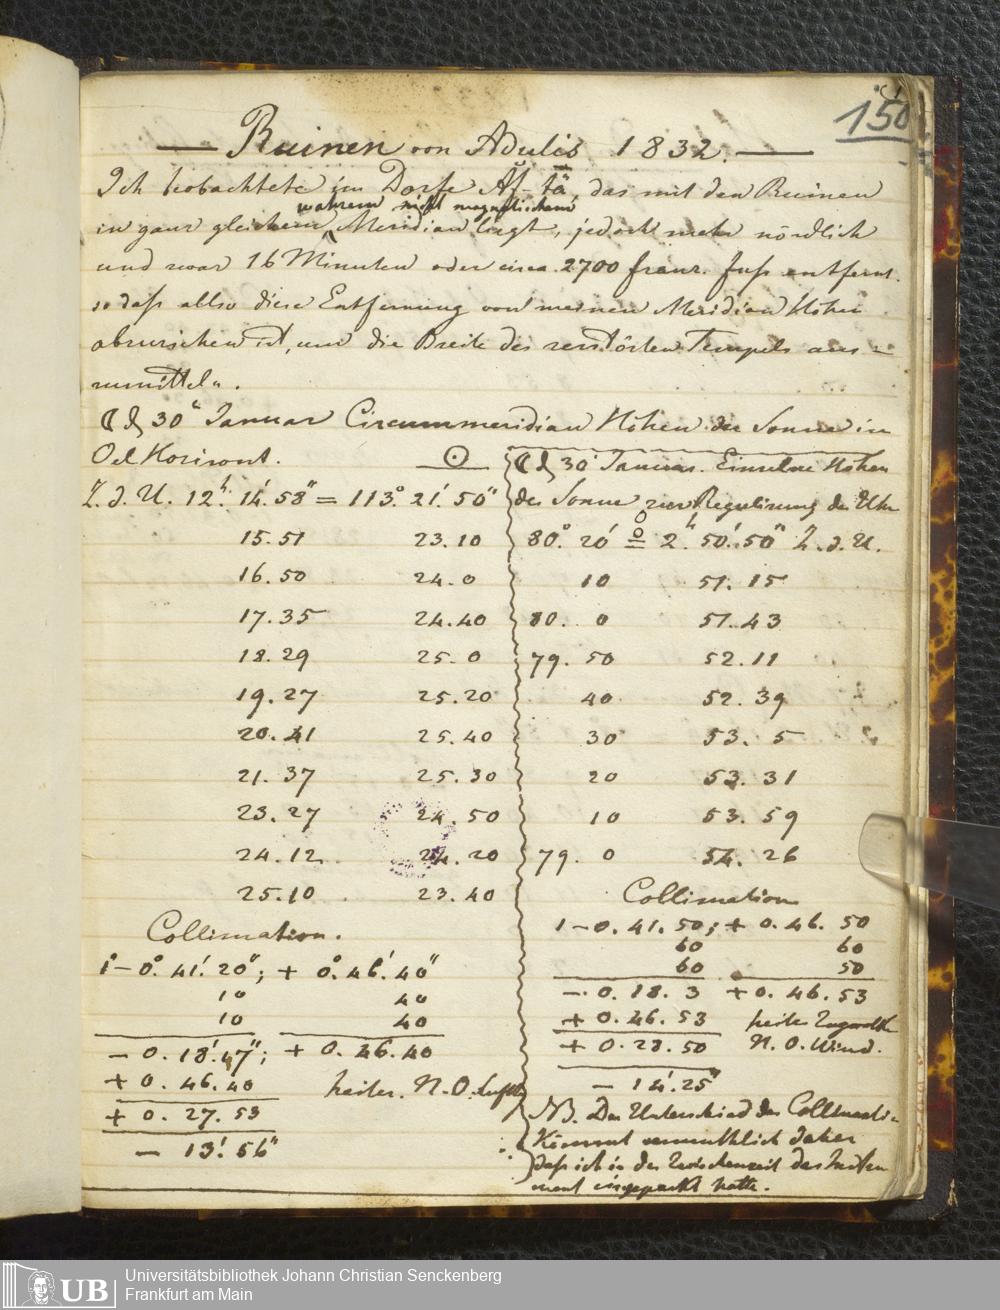 150
— Ruinen von Adulis 1832. —
Ich beobachtete im Dorfe Af-tä, das mit den Ruinen
wahren nicht magnetischen
in ganz gleichem Meridian liegt, jedoch mehr nördlich
und zwar 16 Minuten oder circa 2700 franz. Fuß entfernt.
so daß also diese Entfernung von meinen Meridian Höhen
abzuziehen ist, um die Breite des zerstörten Tempels aus=
zumitteln.
☾ d 30 Januar Circummeridian Höhen der Sonne im
Oel Horizont. ☉
Z. d. U. 12h. 14'. 58" = 113°. 21'. 50"
15. 51 23. 10
16. 50 24. 0
17. 35 24. 40
18. 29 25. 0
19. 27 25. 20
20. 41 25. 40
21. 37 25. 30
23. 27 24. 50
24. 12 24. 20
25. 10 23. 40
Collimation.
1° - 0°. 41'. 20"; + 0°. 46'. 40"
10 40
10 40
- 0. 18'. 47"; + 0. 46. 40
+ 0. 46. 40 heiter. N. O. Luft
+ 0. 27. 53
- 13'. 56"
☾ d 30 Januar. Einzelne Höhen
der Sonne zur Regulirung der Uhr
80°. 20' ☉ = 2h. 50'. 50" Z. d. U.
10 51. 15
80. 0 51. 43
79. 50 52. 11
40 52. 39
30 53. 5
20 53. 31
10 53. 59
79. 0 54. 26
Collimation
1 - 0. 41. 50; + 0. 46. 50
60 60
60 50
- 0. 18. 3 + 0. 46. 53
+ 0. 46. 53 heiter
+ 0. 28. 50 N. O. Wind.
- 14'. 25"
NB. Der Unterschied der Collimati=
kömmt vermuthlich daher
daß ich in der Zwischenzeit das Instru
ment eingepackt hatte.
UB
Universitätsbibliothek Johann Christian Senckenberg
Frankfurt am Main